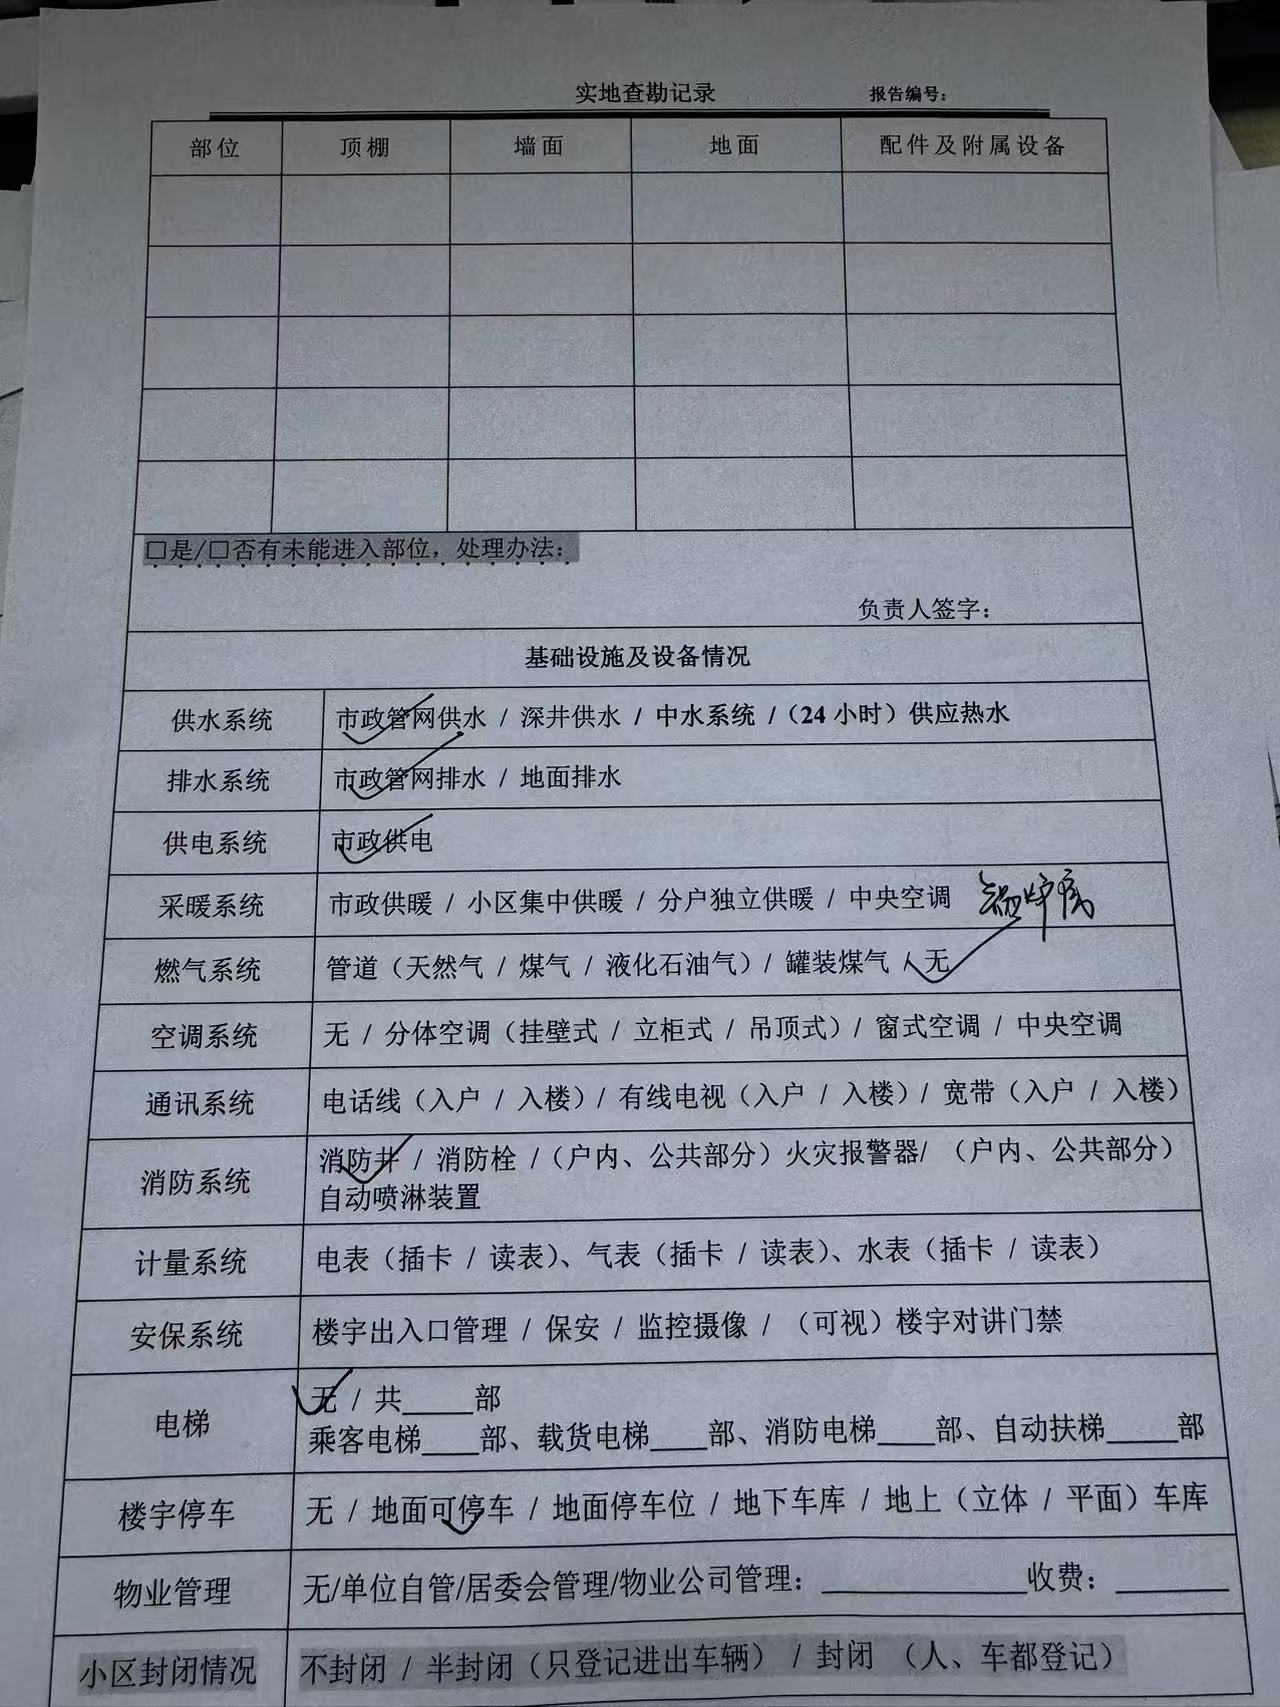 实地查勘记录 报告编号：
部位 顶棚 墙面 地面 配件及附属设备
□是/□否有未能进入部位，处理办法：
负责人签字：
基础设施及设备情况
供水系统 市政管网供水 / 深井供水 / 中水系统 /（24 小时）供应热水
排水系统 市政管网排水 / 地面排水
供电系统 市政供电
采暖系统 市政供暖 / 小区集中供暖 / 分户独立供暖 / 中央空调 锅炉房
燃气系统 管道（天然气 / 煤气 / 液化石油气）/ 罐装煤气 / 无
空调系统 无 / 分体空调（挂壁式 / 立柜式 / 吊顶式）/ 窗式空调 / 中央空调
通讯系统 电话线（入户 / 入楼）/ 有线电视（入户 / 入楼）/ 宽带（入户 / 入楼）
消防系统 消防井 / 消防栓 /（户内、公共部分）火灾报警器/ （户内、公共部分）
自动喷淋装置
计量系统 电表（插卡 / 读表）、气表（插卡 / 读表）、水表（插卡 / 读表）
安保系统 楼宇出入口管理 / 保安 / 监控摄像 / （可视）楼宇对讲门禁
电梯 无 / 共____部
乘客电梯____部、载货电梯____部、消防电梯____部、自动扶梯____部
楼宇停车 无 / 地面可停车 / 地面停车位 / 地下车库 / 地上（立体 / 平面）车库
物业管理 无/单位自管/居委会管理/物业公司管理：____________收费：_______
小区封闭情况 不封闭 / 半封闭（只登记进出车辆） / 封闭 （人、车都登记）